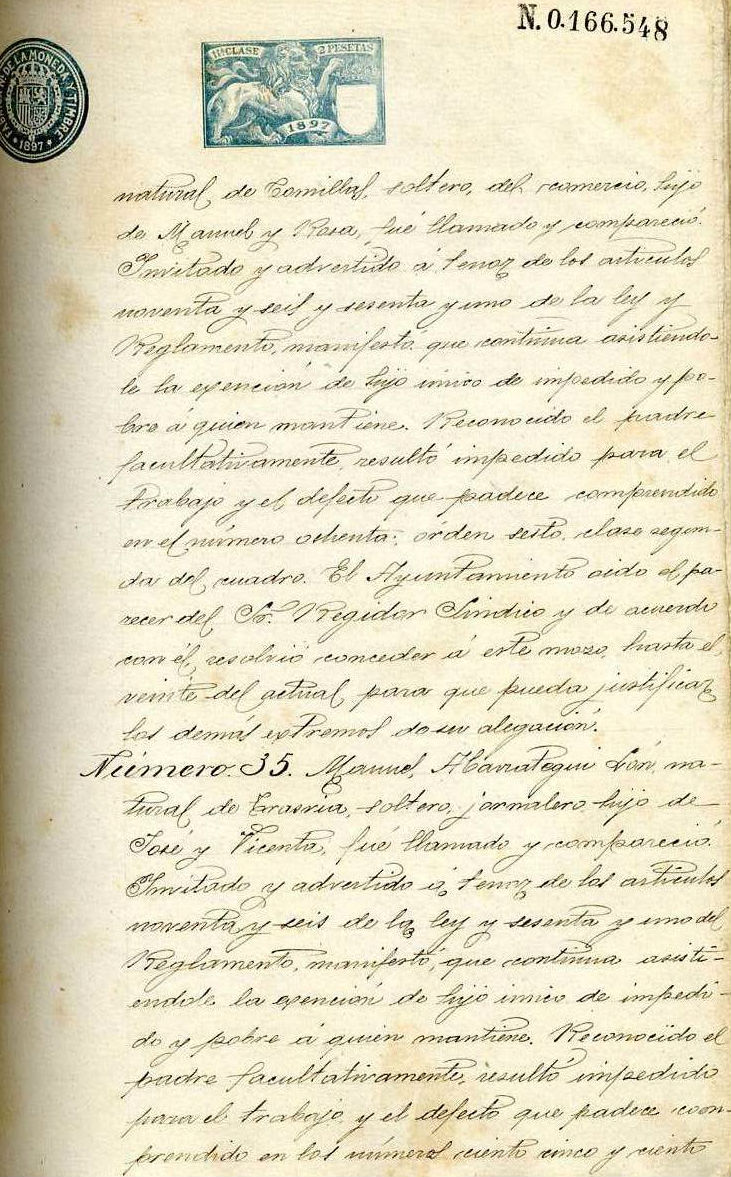 N. 0.166.548
11ª CLASE 2 PESETAS
1897
FÁBRICA N. DE LA MONEDA Y TIMBRE
1897
natural de Comillas, soltero, del comercio, hijo
de Manuel y Rosa, fué llamado y compareció.
Invitado y advertido á tenor de los articulos
noventa y seis y sesenta y uno de la ley y
Reglamento, manifesto, que continua asistiendo-
le la exención de hijo único de impedido y po-
bre á quien mantiene. Reconocido el padre
facultativamente, resultó impedido para el
trabajo y el defecto que padece comprendido
en el número ochenta, orden sesto, clase segun-
da del cuadro. El Ayuntamiento oido el pa-
recer del Sr. Regidor Sindico y de acuerdo
con él, resolvió conceder á este mozo, hasta el
veinte del actual para que pueda justificar
los demás extremos de su alegación.
Número 35. Manuel Abarrategui Gon, na-
tural de Trasvia, soltero, jornalero, hijo de
José y Vicenta, fué llamado y compareció.
Invitado y advertido á tenor de los articulos
noventa y seis de la ley y sesenta y uno del
Reglamento, manifestó, que continua asisti-
endole la exención de hijo único de impedi-
do y pobre á quien mantiene. Reconocido el
padre facultativamente, resultó impedido
para el trabajo y el defecto que padece com-
prendido en los números ciento cinco y ciento